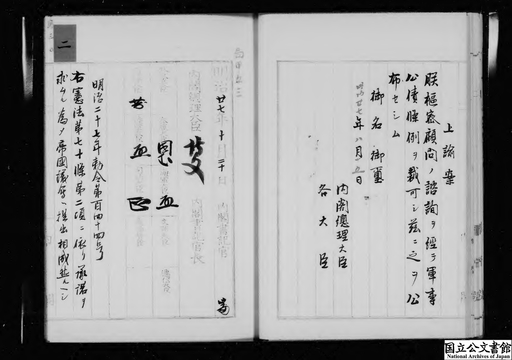 上諭案
朕樞密顧問ノ諮詢ヲ經テ軍事
公債條例ヲ裁可シ茲ニ之ヲ公
布セシム
御名 御璽
明治廿七年八月 日
内閣總理大臣
各大臣
明治廿七年十月二十日
内閣總理大臣
内閣書記官長
内閣書記官
明治二十七年勅令第百四十四号
右憲法第七十條第二項ニ依リ承諾ヲ
求ムル為メ帝國議會ヘ提出相成然ヘシ
二
国立公文書館
National Archives of Japan